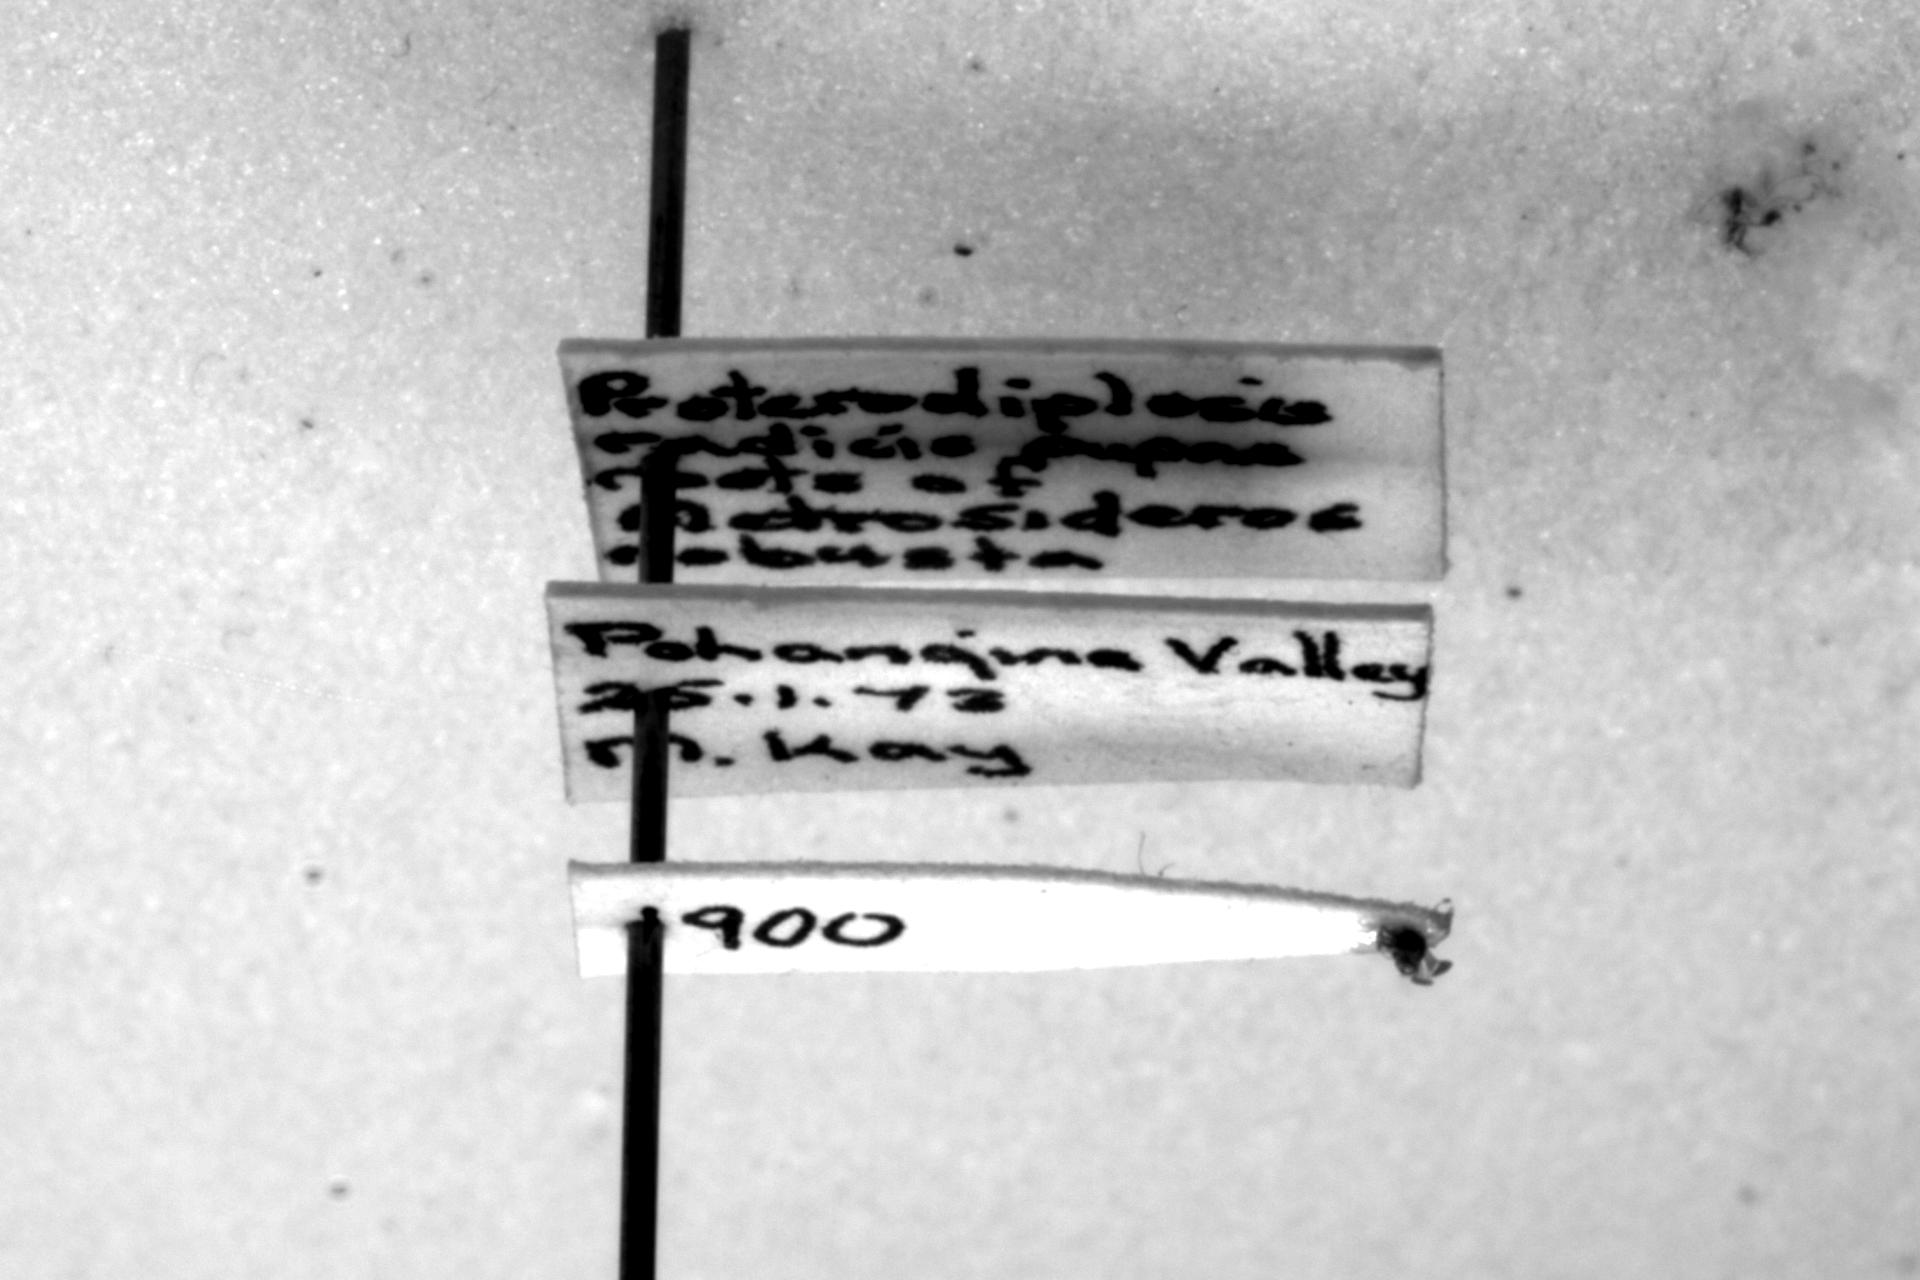 Proterodiplosis
radicis pupae
roots of
Metrosideros
robusta
Pohangina Valley
25.1.73
M. Kay
900